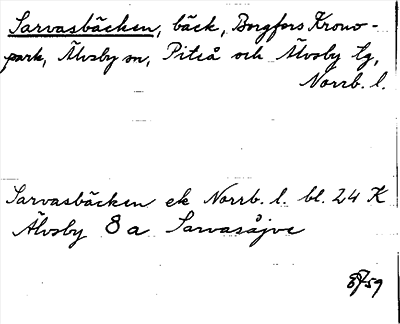 Sarvasbäcken, bäck, Borgfors Krono-
park, Älvsby sn, Piteå och Älvsby tg,
Norrb. l.
Sarvasbäcken ek Norrb. l. bl. 24 K
Älvsby 8a Sarvasåjve
59